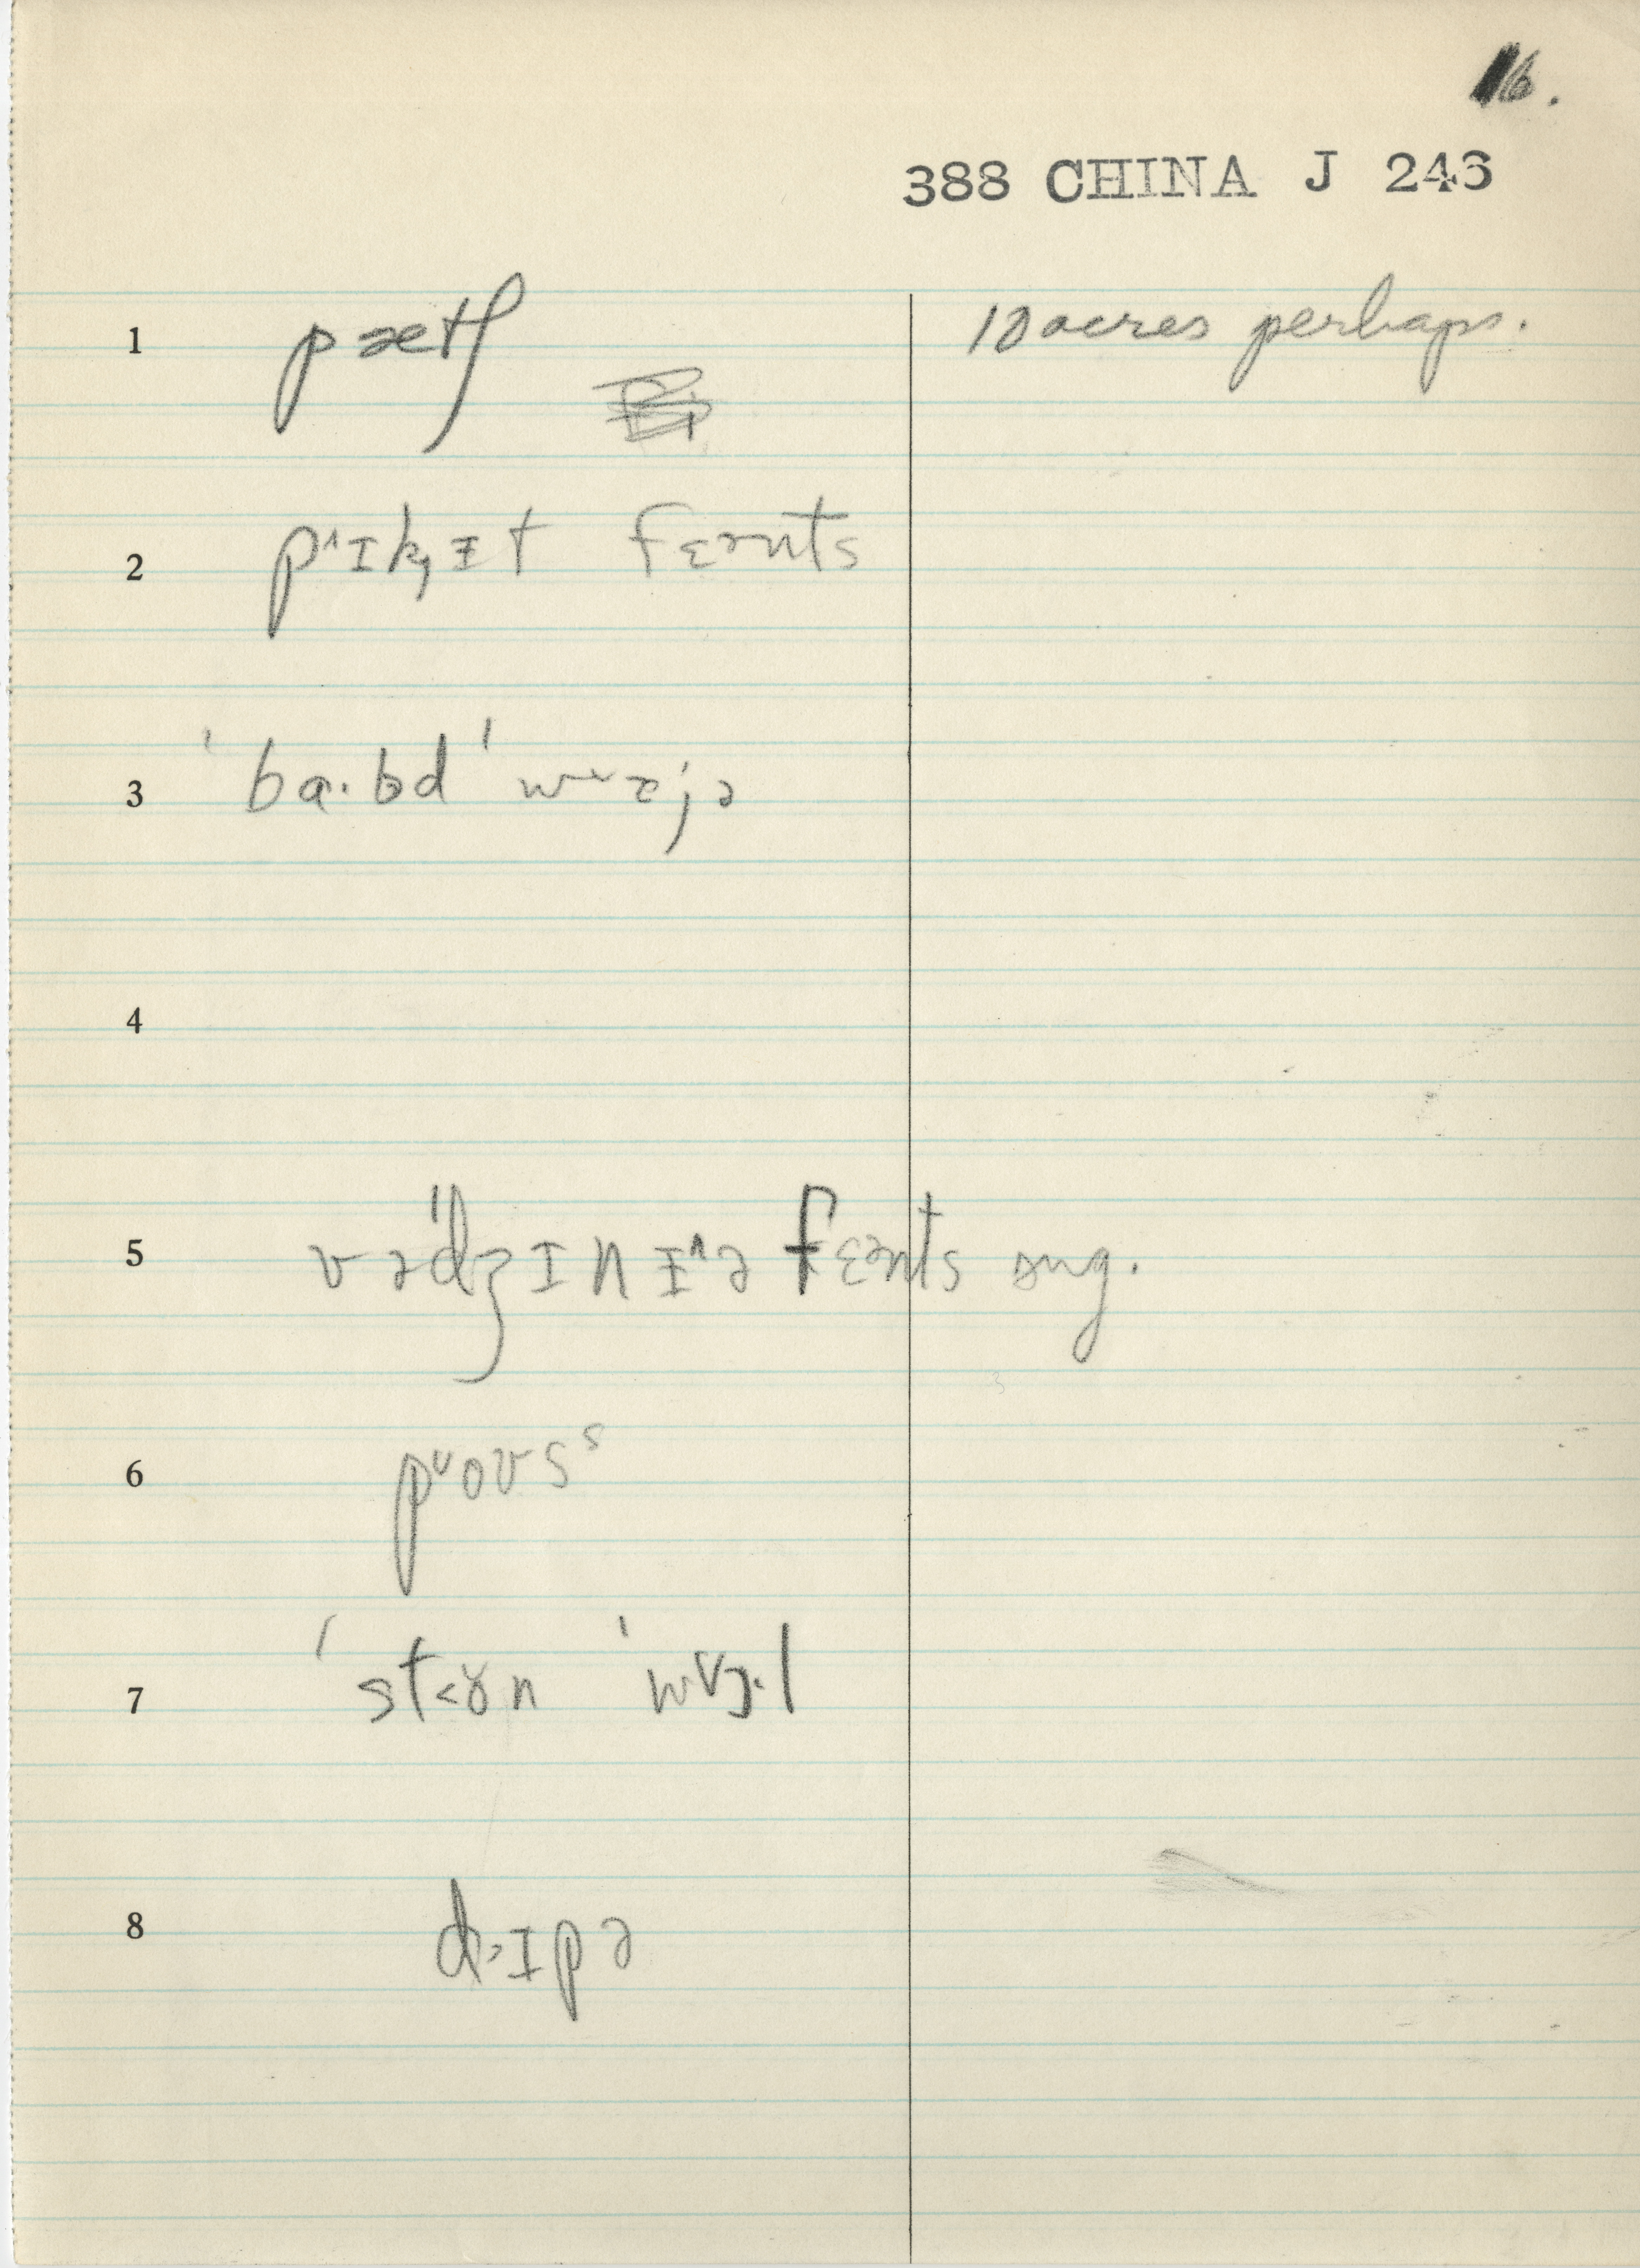 16.
388 CHINA J 246
1 pætʃ 10 acres perhaps.
2 p˄ɪk̡ɪ̵t fɛənts
3 ˈba·bd ˈw˅æjə
4
5 vəˈdʒɪnɪ̵˄ə fɛənts sug.
6 p˅oʊsˢ
7 ˈst˂ɤn ˈw˅ɔ·l
8 d˒ɪpə